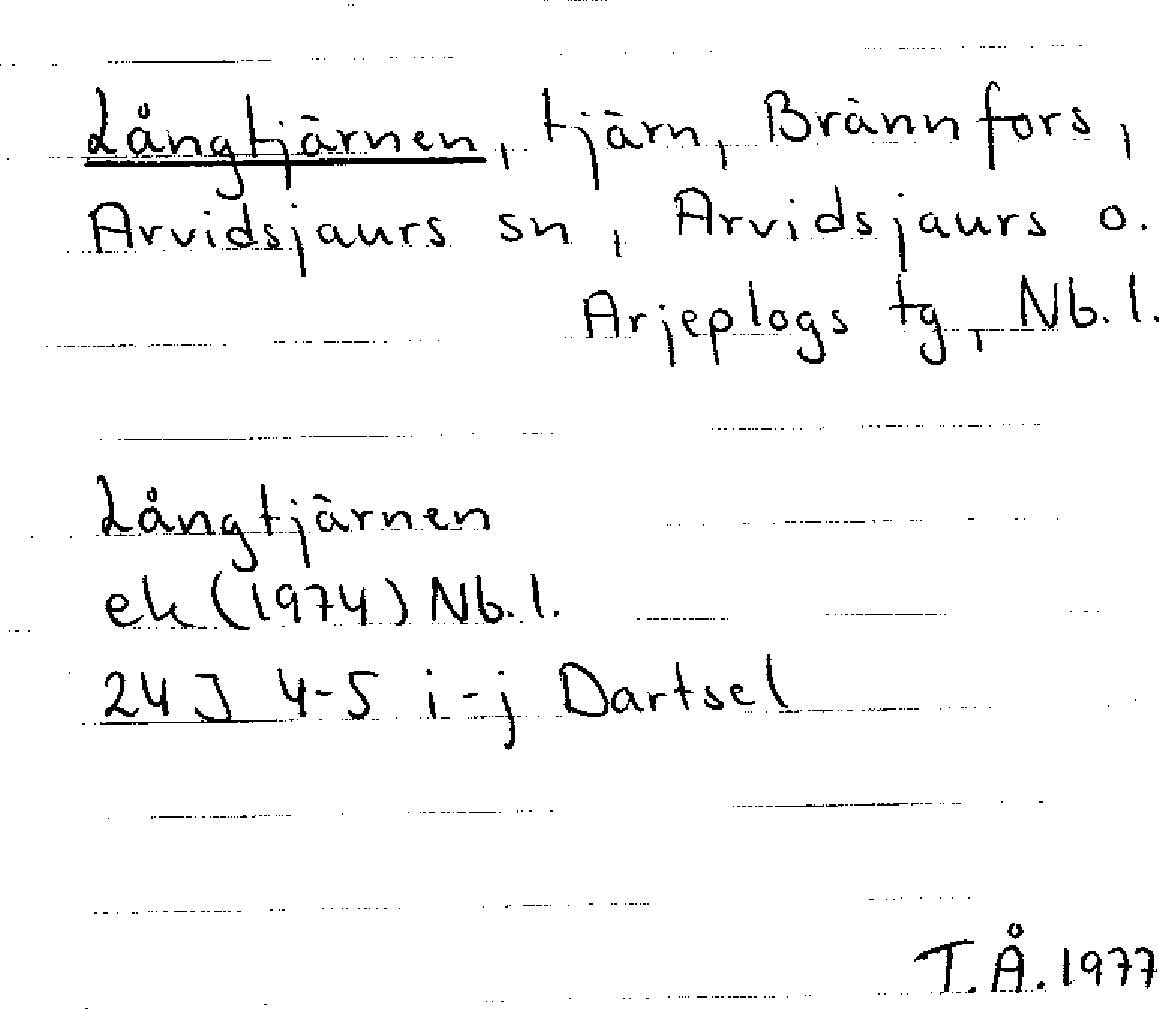 Långtjärnen, tjärn, Brännfors,
Arvidsjaurs sn, Arvidsjaurs o.
Arjeplogs tg, Nb. l.
Långtjärnen
ek (1974) Nb. l.
24 J 4-5 i-j Dartsel
T.Å. 1977